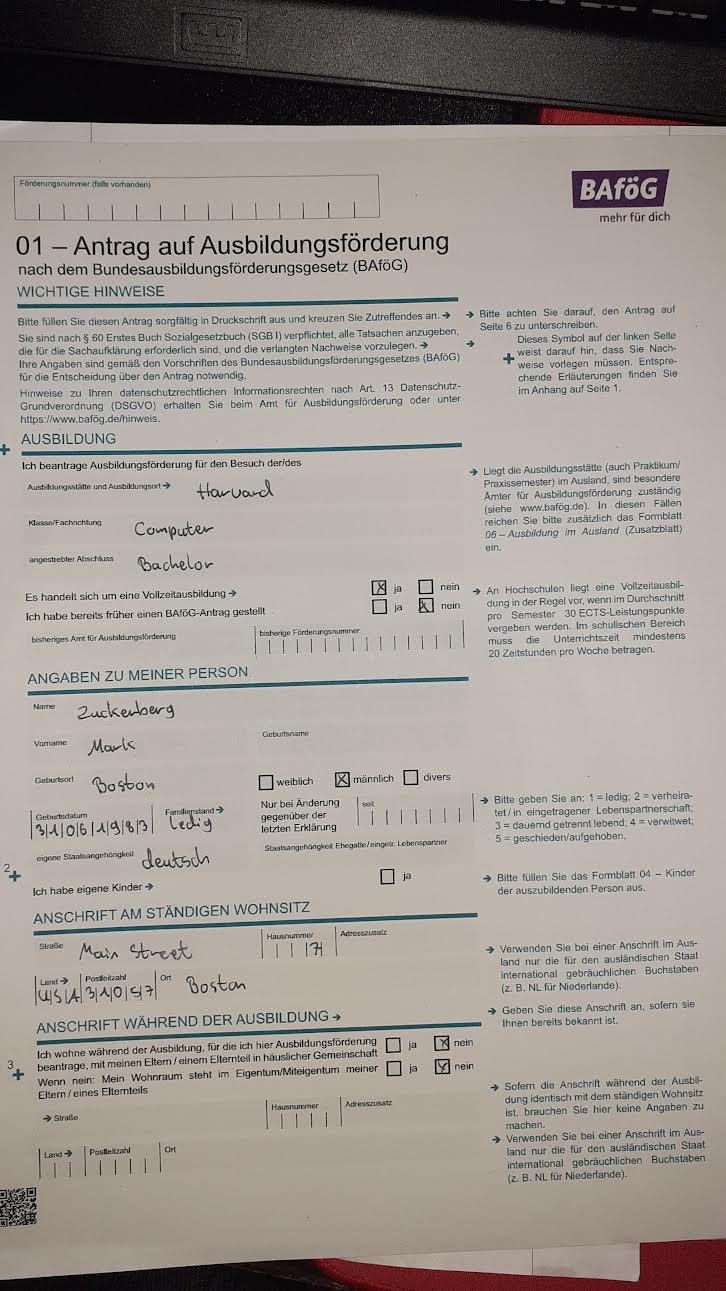 Förderungsnummer (falls vorhanden)
BAföG
mehr für dich
01 – Antrag auf Ausbildungsförderung
nach dem Bundesausbildungsförderungsgesetz (BAföG)
WICHTIGE HINWEISE
Bitte füllen Sie diesen Antrag sorgfältig in Druckschrift aus und kreuzen Sie Zutreffendes an. →
Sie sind nach § 60 Erstes Buch Sozialgesetzbuch (SGB I) verpflichtet, alle Tatsachen anzugeben,
die für die Sachaufklärung erforderlich sind, und die verlangten Nachweise vorzulegen. →
Ihre Angaben sind gemäß den Vorschriften des Bundesausbildungsförderungsgesetzes (BAföG)
für die Entscheidung über den Antrag notwendig.
Hinweise zu Ihren datenschutzrechtlichen Informationsrechten nach Art. 13 Datenschutz-
Grundverordnung (DSGVO) erhalten Sie beim Amt für Ausbildungsförderung oder unter
https://www.bafög.de/hinweis.
→ Bitte achten Sie darauf, den Antrag auf
Seite 6 zu unterschreiben.
→ Dieses Symbol auf der linken Seite
+ weist darauf hin, dass Sie Nach-
weise vorlegen müssen. Entspre-
chende Erläuterungen finden Sie
im Anhang auf Seite 1.
+ AUSBILDUNG
Ich beantrage Ausbildungsförderung für den Besuch der/des
Ausbildungsstätte und Ausbildungsort → Harvard
Klasse/Fachrichtung Computer
angestrebter Abschluss Bachelor
→ Liegt die Ausbildungsstätte (auch Praktikum/
Praxissemester) im Ausland, sind besondere
Ämter für Ausbildungsförderung zuständig
(siehe www.bafög.de). In diesen Fällen
reichen Sie bitte zusätzlich das Formblatt
06 – Ausbildung im Ausland (Zusatzblatt)
ein.
Es handelt sich um eine Vollzeitausbildung → X ja nein
Ich habe bereits früher einen BAföG-Antrag gestellt ja X nein
bisheriges Amt für Ausbildungsförderung bisherige Förderungsnummer
→ An Hochschulen liegt eine Vollzeitausbil-
dung in der Regel vor, wenn im Durchschnitt
pro Semester 30 ECTS-Leistungspunkte
vergeben werden. Im schulischen Bereich
muss die Unterrichtszeit mindestens
20 Zeitstunden pro Woche betragen.
ANGABEN ZU MEINER PERSON
Name Zuckenberg
Vorname Mark Geburtsname
Geburtsort Boston weiblich X männlich divers
Geburtsdatum Familienstand → Nur bei Änderung seit
31061983 ledig gegenüber der
letzten Erklärung
→ Bitte geben Sie an: 1 = ledig; 2 = verheira-
tet / in eingetragener Lebenspartnerschaft;
3 = dauernd getrennt lebend; 4 = verwitwet;
5 = geschieden/aufgehoben.
eigene Staatsangehörigkeit deutsch Staatsangehörigkeit Ehegatte / eingetr. Lebenspartner
2 +
Ich habe eigene Kinder → ja
→ Bitte füllen Sie das Formblatt 04 – Kinder
der auszubildenden Person aus.
ANSCHRIFT AM STÄNDIGEN WOHNSITZ
Straße Main Street Hausnummer 7 Adresszusatz
Land → Postleitzahl Ort
USA 31057 Boston
→ Verwenden Sie bei einer Anschrift im Aus-
land nur die für den ausländischen Staat
international gebräuchlichen Buchstaben
(z. B. NL für Niederlande).
ANSCHRIFT WÄHREND DER AUSBILDUNG →
→ Geben Sie diese Anschrift an, sofern sie
Ihnen bereits bekannt ist.
3 +
Ich wohne während der Ausbildung, für die ich hier Ausbildungsförderung ja X nein
beantrage, mit meinen Eltern / einem Elternteil in häuslicher Gemeinschaft
Wenn nein: Mein Wohnraum steht im Eigentum/Miteigentum meiner ja X nein
Eltern / eines Elternteils
→ Straße Hausnummer Adresszusatz
Land → Postleitzahl Ort
→ Sofern die Anschrift während der Ausbil-
dung identisch mit dem ständigen Wohnsitz
ist, brauchen Sie hier keine Angaben zu
machen.
→ Verwenden Sie bei einer Anschrift im Aus-
land nur die für den ausländischen Staat
international gebräuchlichen Buchstaben
(z. B. NL für Niederlande).